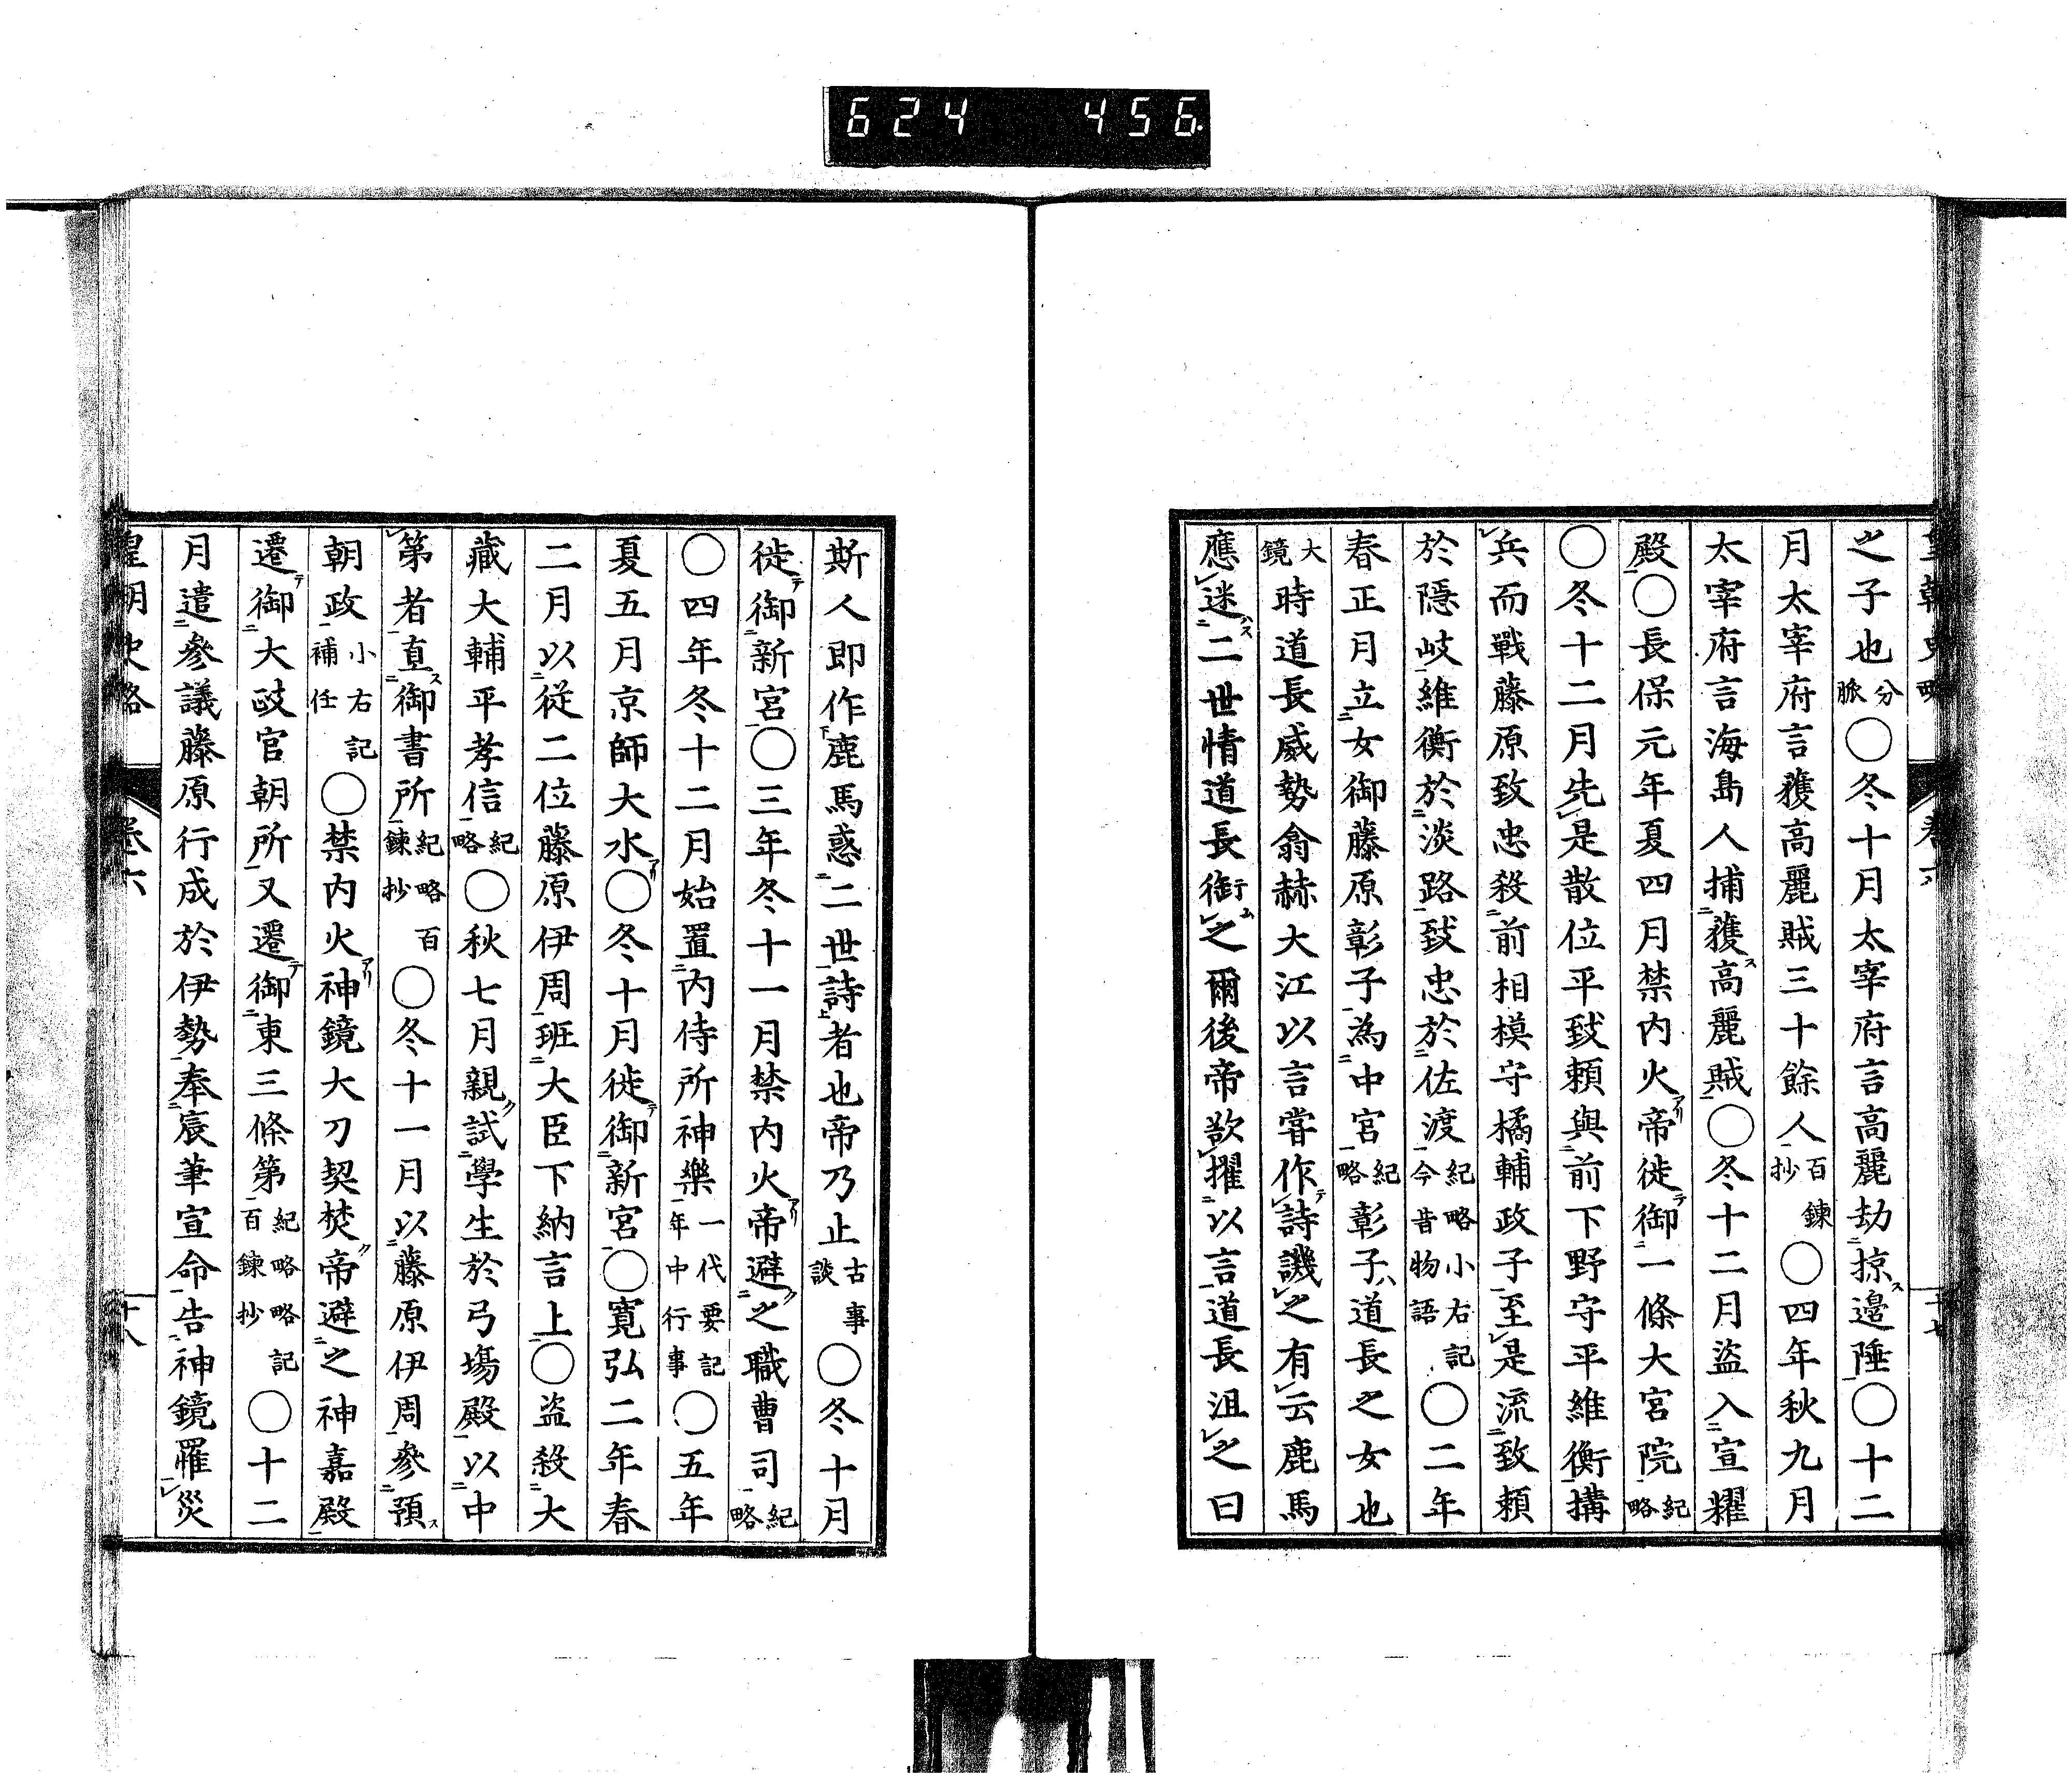 624 456
皇朝史略 卷六 十七
之子也分脈○冬十月太宰府言高麗劫掠ス邊陲○十二
月太宰府言獲高麗賊三十餘人百鍊抄○四年秋九月
太宰府言海島人捕獲ス高麗賊○冬十二月盜入宣耀
殿○長保元年夏四月禁内火アリ帝徙テ御一條大宮院紀略
○冬十二月先是散位平致頼與前下野守平維衡搆
兵而戰藤原致忠殺前相模守橘輔政子至是流致頼
於隱岐維衡於淡路致忠於佐渡紀略小右記今昔物語○二年
春正月立女御藤原彰子為中宮紀略彰子ハ道長之女也
大鏡時道長威勢翕赫大江以言嘗作テ詩譏之有云鹿馬
應迷ハス二世情道長銜ム之爾後帝欲擢以言道長沮之曰
斯人即作鹿馬惑二世詩者也帝乃止古事談○冬十月
徙テ御新宮○三年冬十一月禁内火アリ帝避ク之職曹司紀略
○四年冬十二月始置内侍所神樂一代要記年中行事○五年
夏五月京師大水アリ○冬十月徙テ御新宮○寛弘二年春
二月以從二位藤原伊周班大臣下納言上○盜殺大
藏大輔平孝信紀略○秋七月親ク試學生於弓場殿以中
第者直ス御書所紀略百鍊抄○冬十一月以藤原伊周參預ス
朝政小右記補任○禁内火アリ神鏡大刀契焚ク帝避之神嘉殿
遷テ御大政官朝所又遷テ御東三條第紀略略記百鍊抄○十二
月遣參議藤原行成於伊勢奉宸筆宣命告神鏡罹災
皇朝史略 卷六 十八